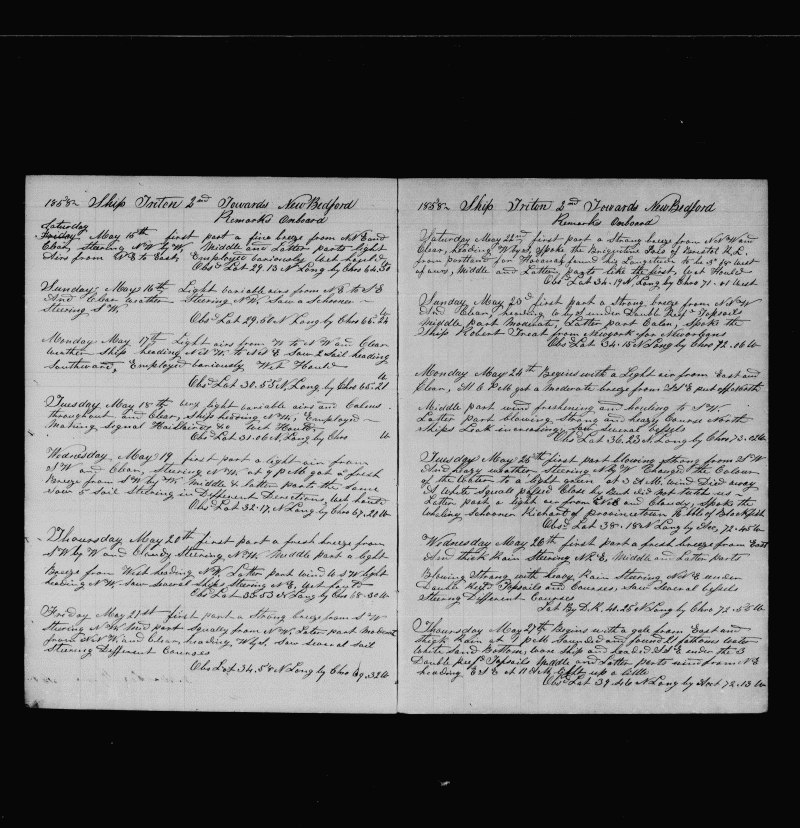 1858 Ship Triton 2nd Towards New Bedford
Remarks Onboard
Saturday
Friday May 15th first part a fine breeze from NNE and
Clear, steering NW by W. Middle and Latter parts light
Airs from NE to East, Employed variously Wet hould
Obs Lat 29.13 N Long by Chro 64.36
Sunday May 16th Light variable airs from NE to SE
And Clear weather Steering NW. Saw a Schooner
Steering SW.
Obs Lat 29.50 N Long by Chro 65.24 W
Monday May 17th Light airs from W to NW and Clear
weather Ship heading to Saw 2 Sail heading
Southward, Employed variously Wet Hould
Obs Lat 30.53 N Long by Chro 65.21 W
Tuesday May 18th very light variable airs and Calms
throughout and Clear, Ship heading NW, Employed
Making Signal Halliards &c Wet Hould
Obs Lat 31.06 N Long by Chro W
Wednesday May 19 first part a light air from
SW and Clear, Steering NW at 9 PM got a fresh
Breeze from SW by W, Middle & latter parts the same
Saw 5 sail Steering in Different Directions, Wet hould
Obs Lat 32.17 N Long by Chro 67.20 W
Thoursday May 20th first part a fresh breeze from
SW by W and Cloudy Steering NW. Middle part a light
Breeze from West heading Latter part wind light
heading NW Saw several Ships Steering NE, Wet
Obs Lat 33.53 N Long by Chro 68.30 W
Friday May 21st first part a strong breeze from SW
Steering NW, Mid part Squally from NW, Latter part Moderate
from and Clear, heading, saw several sail
Steering Different Courses
Obs Lat 34.58 N Long by Chro 69.32 W
1858 Ship Triton 2nd Towards New Bedford
Remarks Onboard
Saturday May 22nd first part a Strong breeze from and
Clear, heading spoke the Brigantine of Bristol R.I.
from portland for Havanah found his Longitude to be West
of ours, Middle and Latter parts like the first, Wet Hould
Obs Lat 34.19 N Long by Chro 71.01 West
Sunday May 23d first part a Strong breeze from
And Clear, heading under Double Reef Topsails
Middle part Moderate, Latter part Calm, Spoke the
Ship Robert Treat from Newyork for
Obs Lat 34.15 N Long by Chro 72.06 W
Monday May 24th Begins with a Light air from East and
Clear, At 6 PM got a Moderate breeze from
Middle part wind freshening and hauling to SW.
Latter part blowing strong and heazy Course North
Ships Leak increasing, saw several vessels
Obs Lat 36.23 N Long by Chro 73.02 W
Tuesday May 25th first part blowing strong from SW
And heazy weather Steering Changed the Colour
of the Water to a light green at 3 AM. wind Died away
A White Squall passed Close by But did not touch us
Latter part a light air from and Cloudy, Spoke the
Whaling Schooner Richard of provincetown Bbls of Blackfish
Obs Lat 38.18 N Long by 72.45 W
Wednesday May 26th first part a fresh breeze from East
And thick Rain Steering Middle and Latter parts
Blowing Strong with heavy Rain Steering under
Double Reef Topsails and Courses, Saw Several vessels
Steering Different Courses
Lat By D.R. 40.25 N Long by Chro 72.53 W
Thoursday May 27th Begins with a gale from East and
thick Rain at 7 PM Sounded and found 21 fathoms water
White Sand Bottom, ware Ship and headed under the 3
Double Reef Topsails Middle and Latter parts wind from
heading at 11 AM Light up a little
Obs Lat 39.46 N Long by 72.13 W